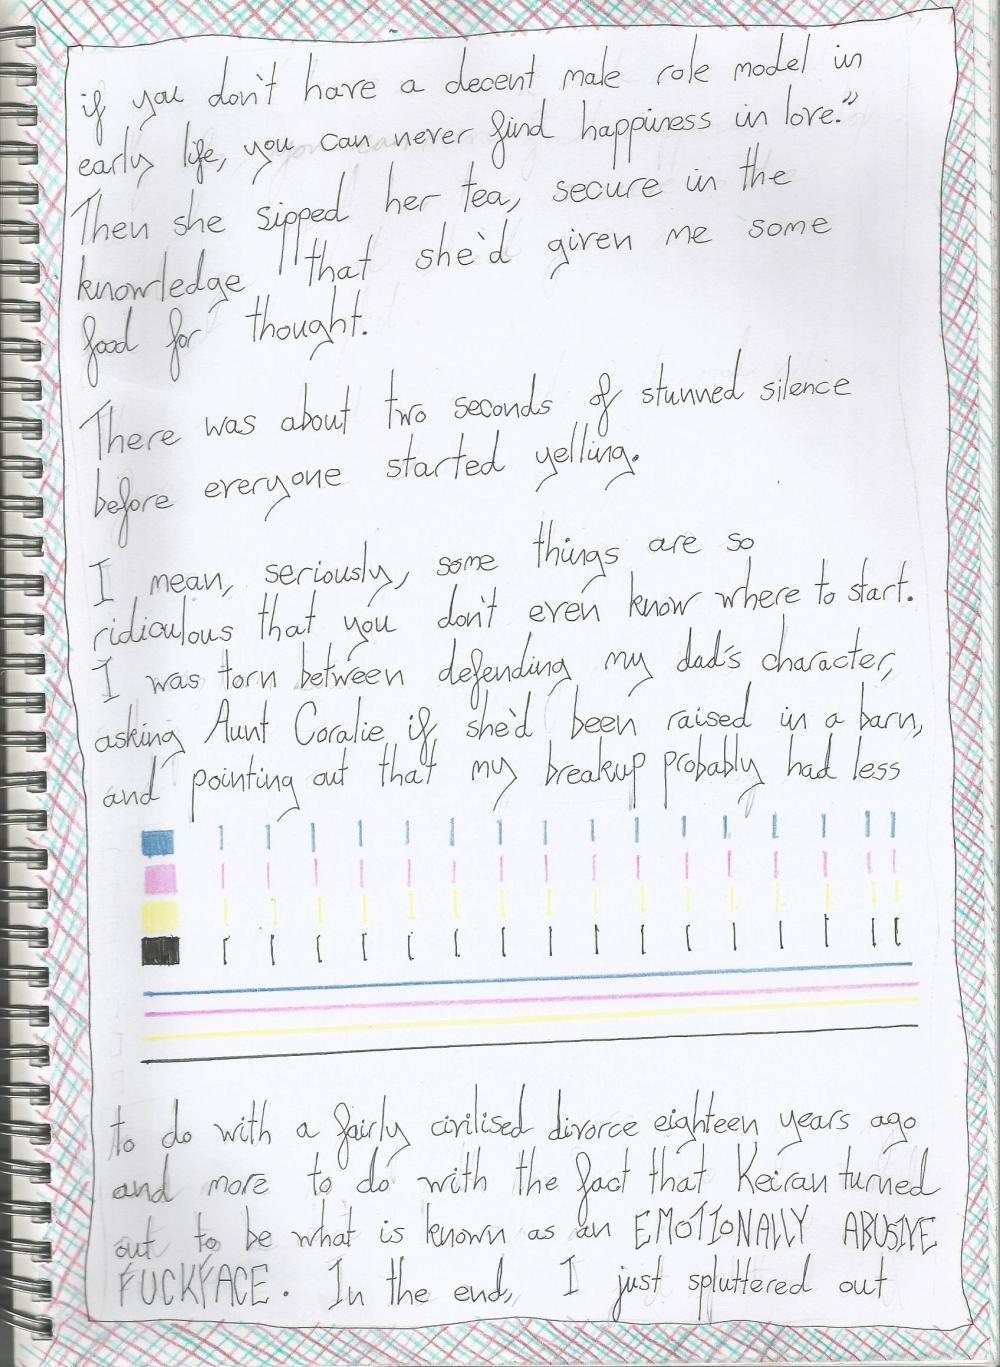 if you don't have a decent male role model in
early life, you can never find happiness in love."
Then she sipped her tea, secure in the
knowledge that she'd given me some
food for thought.
There was about two seconds of stunned silence
before everyone started yelling.
I mean, seriously, some things are so
ridiculous that you don't even know where to start.
I was torn between defending my dad's character,
asking Aunt Coralie if she'd been raised in a barn,
and pointing out that my breakup probably had less
to do with a fairly civilised divorce eighteen years ago
and more to do with the fact that Keiran turned
out to be what is known as an EMOTIONALLY ABUSIVE
FUCKFACE. In the end, I just spluttered out